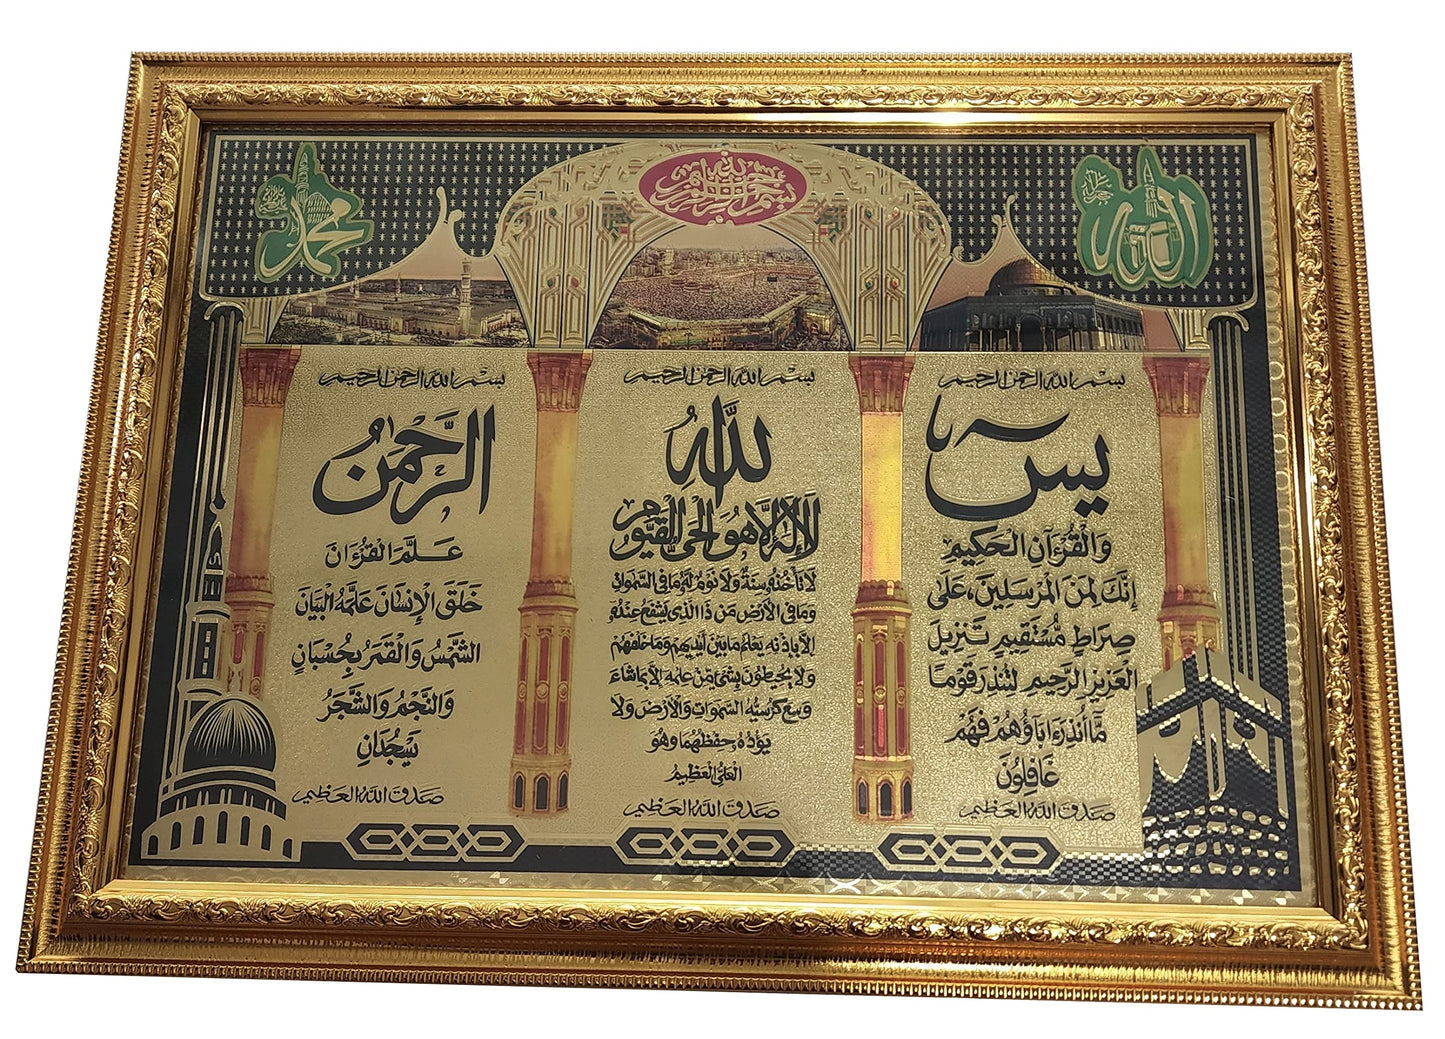 بسم الله الرحمن الرحيم
الله
محمد
بسم الله الرحمن الرحيم
يس
والقرءان الحكيم
إنك لمن المرسلين، على
صراط مستقيم تنزيل
العزيز الرحيم لتنذر قوما
ما أنذر ءاباؤهم فهم
غافلون
صدق الله العظيم
بسم الله الرحمن الرحيم
الله
لا إله إلا هو الحي القيوم
لا تأخذه سنة ولا نوم له ما في السموات
وما في الأرض من ذا الذي يشفع عنده
إلا بإذنه يعلم ما بين أيديهم وما خلفهم
ولا يحيطون بشئ من علمه إلا بما شاء
وسع كرسيه السموات والأرض ولا
يؤده حفظهما وهو
العلي العظيم
صدق الله العظيم
بسم الله الرحمن الرحيم
الرحمن
علم القرءان
خلق الإنسان علمه البيان
الشمس والقمر بحسبان
والنجم والشجر
يسجدان
صدق الله العظيم